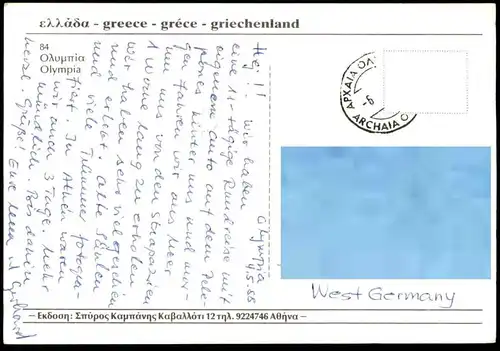 ελλάδα - greece - gréce - griechenland
84
Ολυμπία
Olympia
Olympia
4.5.85
Hej!! Wir haben
eine 11-tägige Rundreise mit
eigenem auto auf dem Pelo-
pones hinter uns und mor-
gen fahren wir ans Meer
um uns von den Strapazien
1 Woche lang zu erholen.
Wir haben sehr viel gesehen
und erlebt. Alte Säulen
und viele Trümmer fotogra-
fiert. In Athen waren
wir auch 3 Tage. Mehr
mündlich. Bis dahin
Grüße! Eure
ΑΡΧΑΙΑ ΟΛ
-6
ARCHAIA O
West Germany
Εκδοση: Σπύρος Καμπάνης Καβαλλότι 12 τηλ. 9224746 Αθήνα